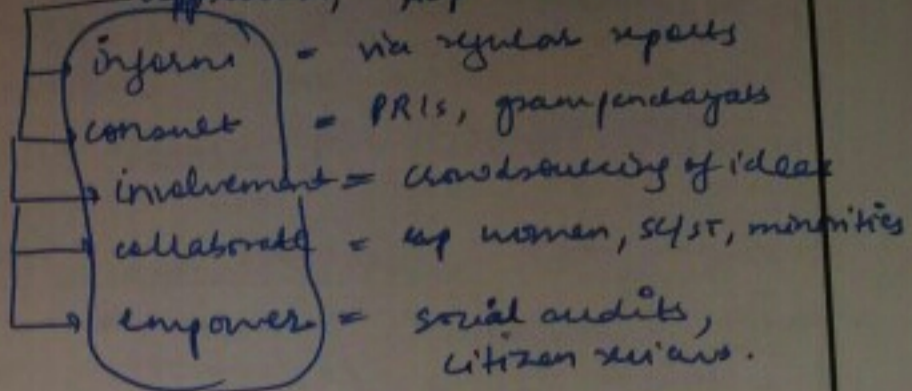 inform = via regular reports
consult = PRIs, gram panchayats
involvement = crowdsourcing of ideas
collaborate = esp women, SC/ST, minorities
empower = social audits,
citizen reviews.